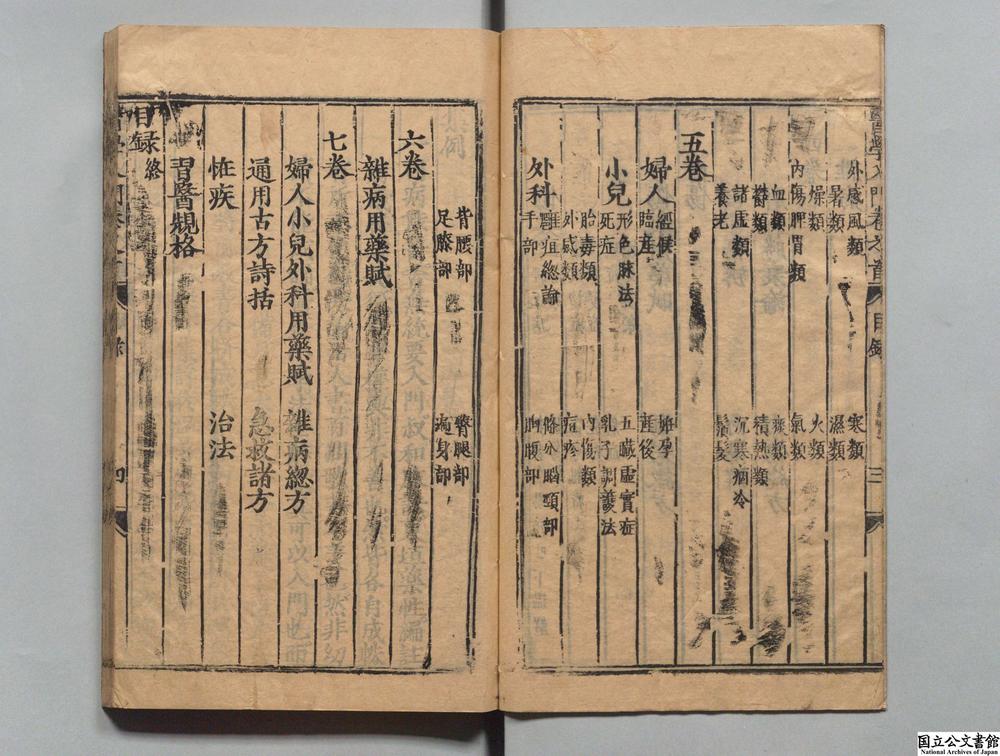 醫學入門卷之首 目錄 三
外感風類 寒類
暑類 濕類
燥類 火類
內傷脾胃類 氣類
血類 痰類
鬱類 積熱類
諸虛類 沉寒痼冷
養老 鬚髮
五卷
婦人
經候 姙孕
臨產 產後
小兒
形色脉法 五臟虛實症
死症 乳子調護法
胎毒類 內傷類
外感類 痘疹
外科
癰疽總論 腦頸部
手部 胸腹部
背腰部 臀腿部
足膝部 遍身部
六卷
雜病用藥賦
七卷
婦人小兒外科用藥賦 雜病總方
通用古方詩括 急救諸方
恠疾 治法
習醫規格
目錄終
四
国立公文書館
National Archives of Japan